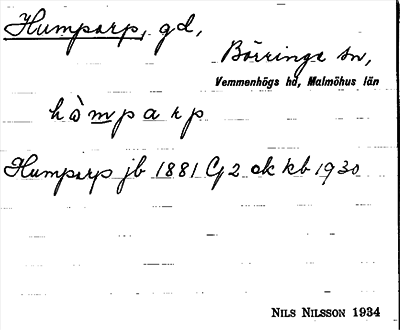 Humparp, gd,
Börringe sn,
Vemmenhögs hd, Malmöhus län
hò̀mparp
Humparp jb 1881 G2 ek kb 1930
NILS NILSSON 1934